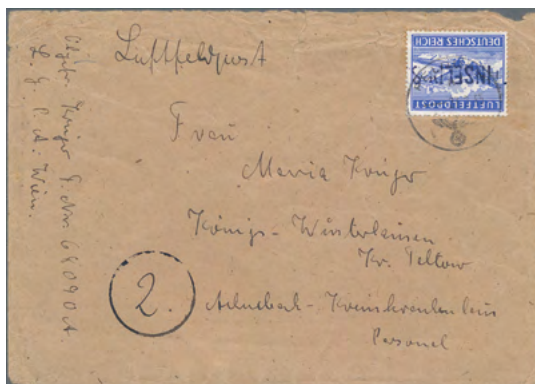 Luftfeldpost
DEUTSCHES REICH
INSELPOST
LUFTFELDPOST
Frau
Maria Krüger
Königs-Wusterhausen
Kr. Teltow
2.
Achenbach-Kreiskrankenhaus
Personal
Krüger F. Nr. 64090 A.
L. G. P. A. Wien.